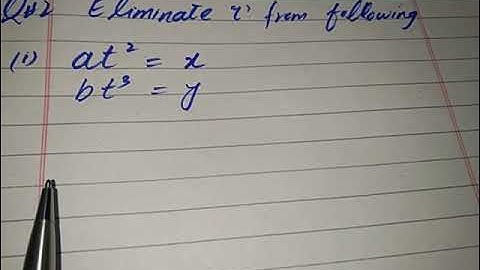 Q#2 Eliminate 't' from following
(1) at² = x
bt³ = y